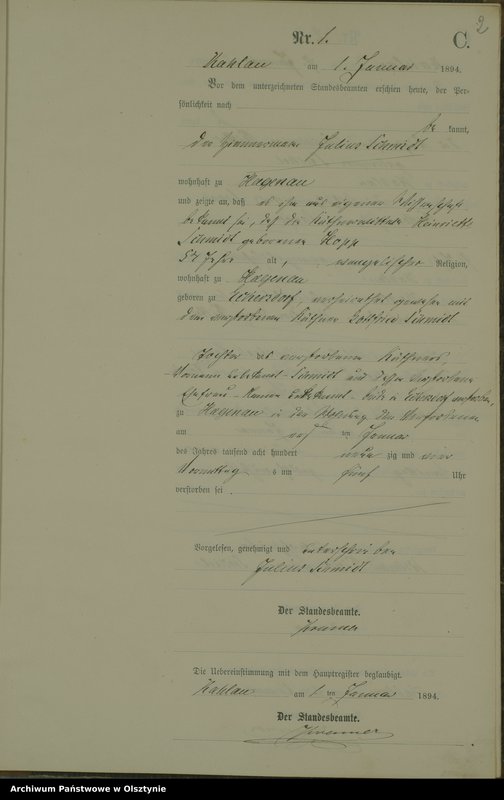 2
Nr. 1. C.
Kahlau am 1. Januar 1894.
Vor dem unterzeichneten Standesbeamten erschien heute, der Per-
sönlichkeit nach
be kannt,
der Julius Schmidt
wohnhaft zu Hagenau
und zeigte an, daß es ihm aus eigener Wissenschaft
bekannt sei, daß die Henriette
Schmidt geborene Hopp
57 Jahre alt, evangelischer Religion,
wohnhaft zu Hagenau
geboren zu Eckersdorf, verheirathet gewesen mit
dem verstorbenen Käthner Gottfried Schmidt
Tochter des verstorbenen Käthners
Vorname unbekannt Schmidt und dessen verstorbenen
Ehefrau Name unbekannt beide in Eckersdorf verstorben,
zu Hagenau in der Wohnung der Verstorbenen
am ersten Januar
des Jahres tausend acht hundert neun zig und vier
Vormittags um fünf Uhr
verstorben sei.
Vorgelesen, genehmigt und unterschrieben
Julius Schmidt
Der Standesbeamte.
Die Uebereinstimmung mit dem Hauptregister beglaubigt.
Kahlau am 1 ten Januar 1894.
Der Standesbeamte.
Archiwum Państwowe w Olsztynie